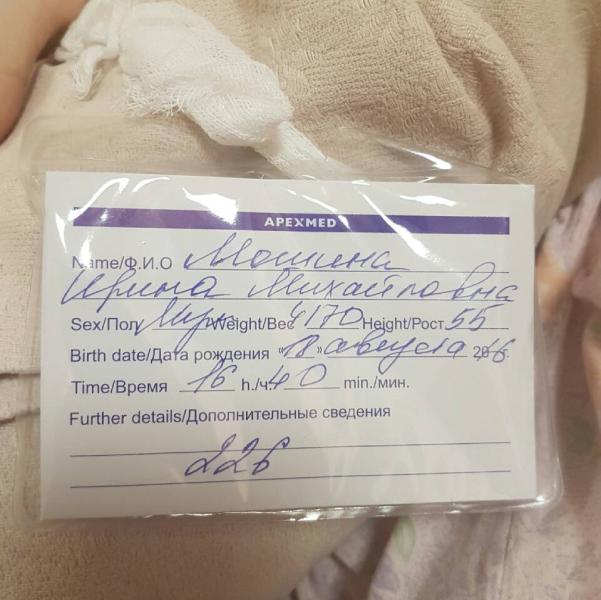 APEXMED
Name/Ф.И.О Мошина
Ирина Михайловна
Sex/Пол Муж Weight/Вес 4170 Height/Рост 55
Birth date/Дата рождения "18" августа 2016.
Time/Время 16 h./ч. 40 min./мин.
Further details/Дополнительные сведения
226